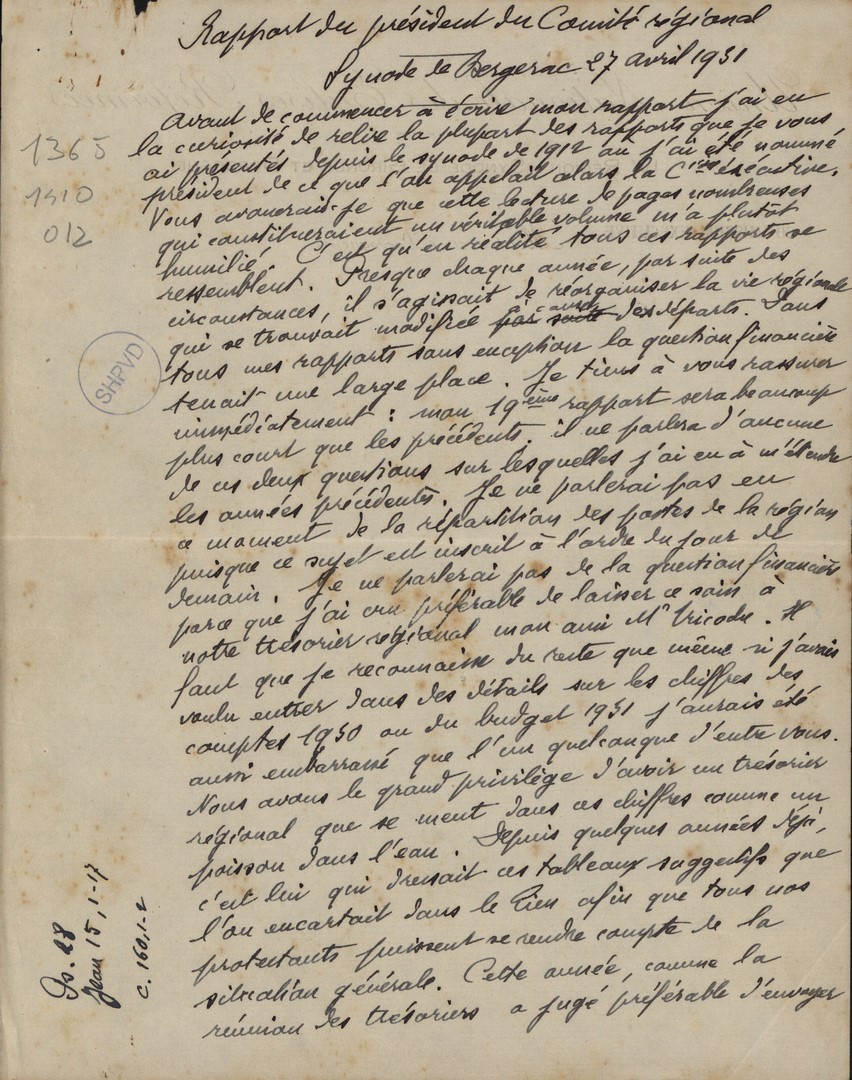 Rapport du président du Comité régional
Synode de Bergerac 27 avril 1931
Avant de commencer à écrire mon rapport j'ai eu
la curiosité de relire la plupart des rapports que je vous
ai présentés depuis le synode de 1912 où j'ai été nommé
président de ce que l'on appelait alors la Cion exécutive.
Vous avouerai-je que cette lecture de pages nombreuses
qui constitueraient un véritable volume m'a plutôt
humilié. C'est qu'en réalité tous ces rapports se
ressemblent. Presque chaque année, par suite des
circonstances, il s'agissait de réorganiser la vie régionale
qui se trouvait modifiée par suite des départs. Dans
tous mes rapports sans exception la question financière
tenait une large place. Je tiens à vous rassurer
immédiatement : mon 19ème rapport sera beaucoup
plus court que les précédents, il ne parlera d'aucune
de ces deux questions sur lesquelles j'ai eu à m'étendre
les années précédentes. Je ne parlerai pas en
ce moment de la répartition des postes de la région
puisque ce sujet est inscrit à l'ordre du jour de
demain. Je ne parlerai pas de la question financière
parce que j'ai cru préférable de laisser ce soin à
notre trésorier régional mon ami Mr Tricode. Il
faut que je reconnaisse du reste que même si j'avais
voulu entrer dans des détails sur les chiffres des
comptes 1930 ou du budget 1931 j'aurais été
aussi embarrassé que l'un quelconque d'entre vous.
Nous avons le grand privilège d'avoir un trésorier
régional que se meut dans ces chiffres comme un
poisson dans l'eau. Depuis quelques années déjà,
c'est lui qui dressait ces tableaux suggestifs que
l'on encartait dans le Lien afin que tous nos
protestants puissent se rendre compte de la
situation générale. Cette année, comme la
réunion des trésoriers a jugé préférable d'envoyer
1365
1910
012
SHPVD
Ps. 28
Jean 15, 1-17
C. 160, 1-2